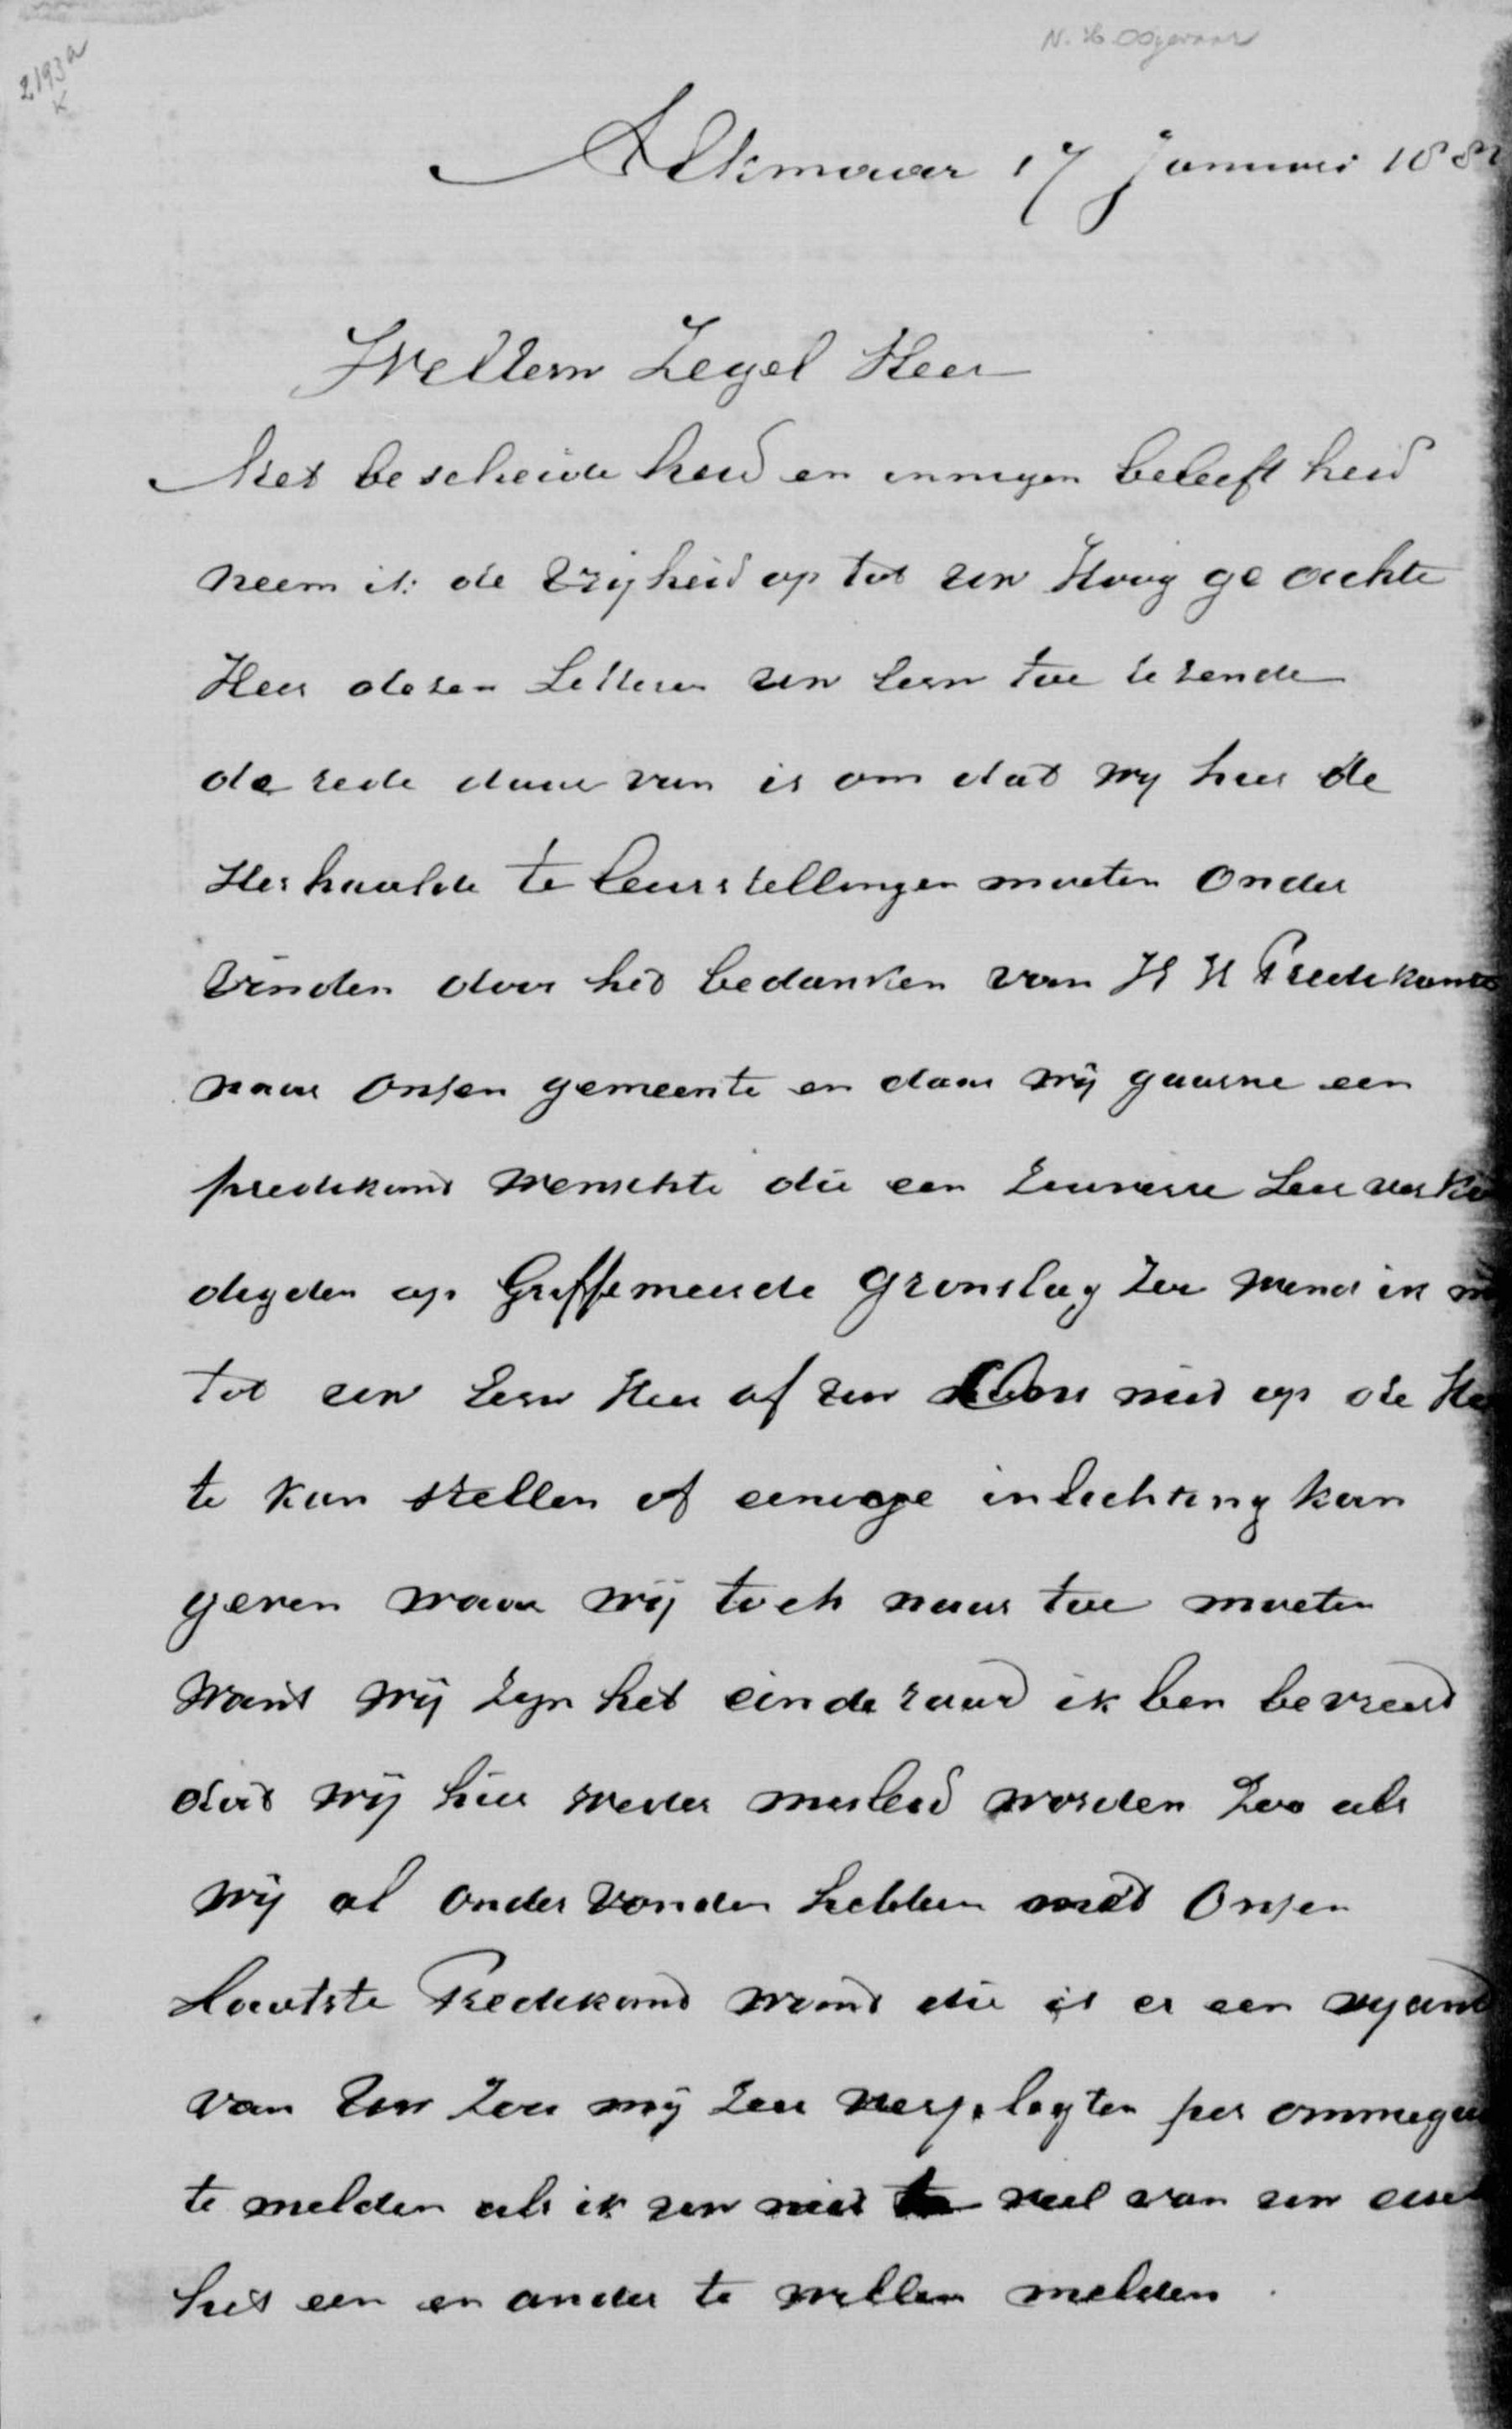 N. H. Oogevaar
2193a
K
Alkmaar 17 Januari 188
WelEerw Zegel Heer
Met bescheide heid en innigen beleeft heid
neem ik de Vrijheid op tot uw Hoog ge achte
Heer desen Letteren uw Eerw toe te sende
de rede daar van is om dat wij hier de
Her haalde te leurstellingen moeten Onder
Vinden door het bedanken van H H Predikante
naar onsen gemeente en daar wij gaarne een
predikand Wenschte die een Zuivere Leer verkon
digden op Griffemeerde Gronslag Zoo wend ik m
tot uw Eerw Heer of uw Eerw mij op de Ho
te kan stellen of eenige inlichting kan
geven waar wij toch naar toe moeten
Want wij zijn het einde raad ik ben bevreesd
dat wij hier weder misleid worden Zoo als
wij al onder Vonden hebben met Onsen
Laatste Predikand want die is er een vyand
van Uw Zou mij Zeer verplegten per ommegaan
te melden als ik uw niet veel van uw
het een en ander te willen melden